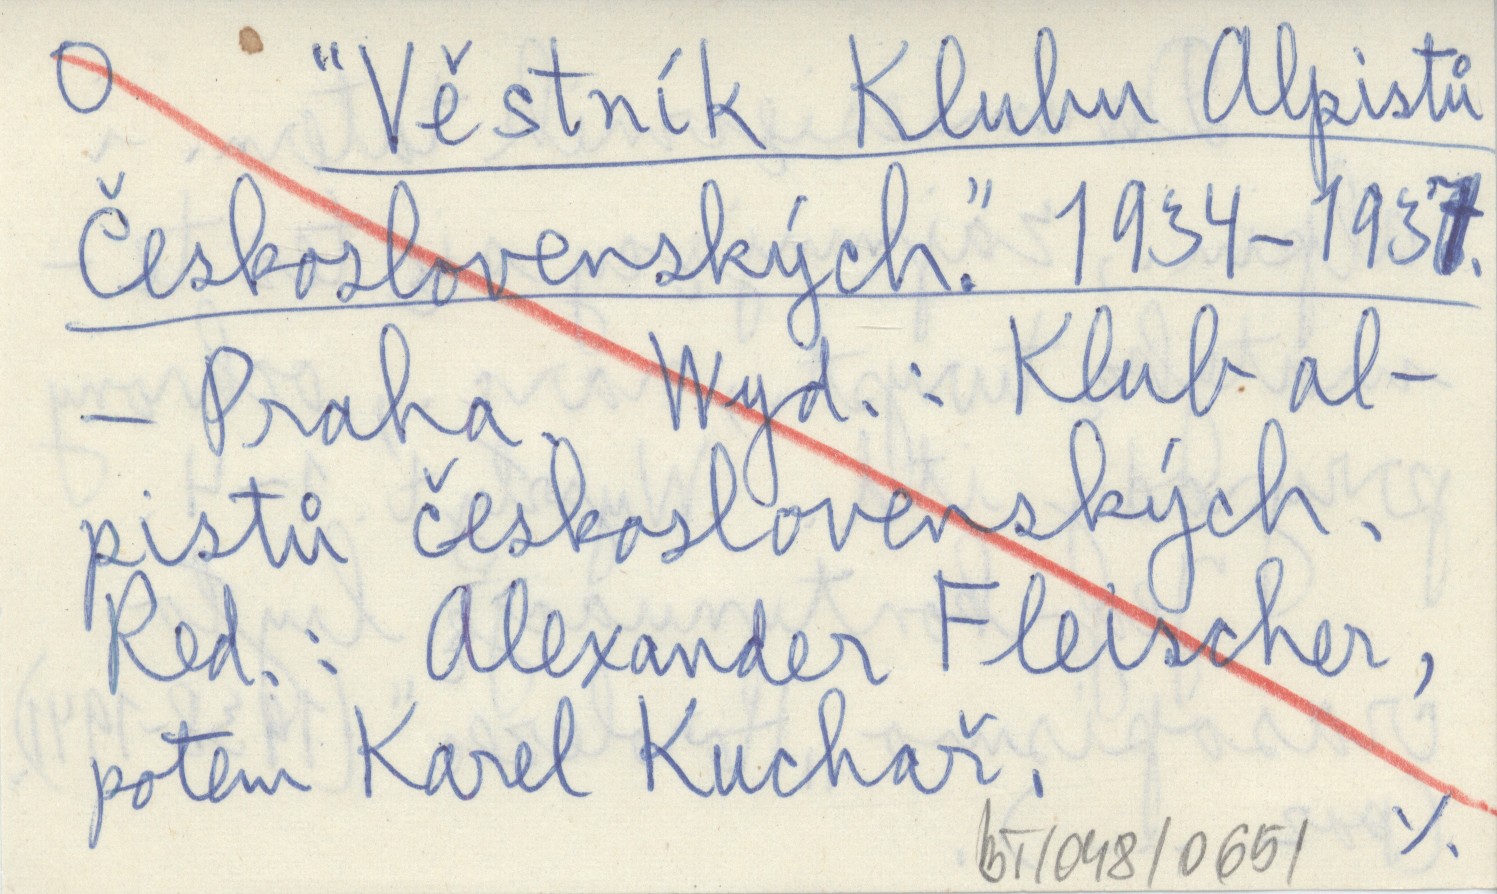 O "Věstník Klubu Alpistů
Československých." 1934-1937.
- Praha. Wyd.: Klub al-
pistů československých.
Red.: Alexander Fleischer,
potem Karel Kuchař.
BT/048/0651 ./.